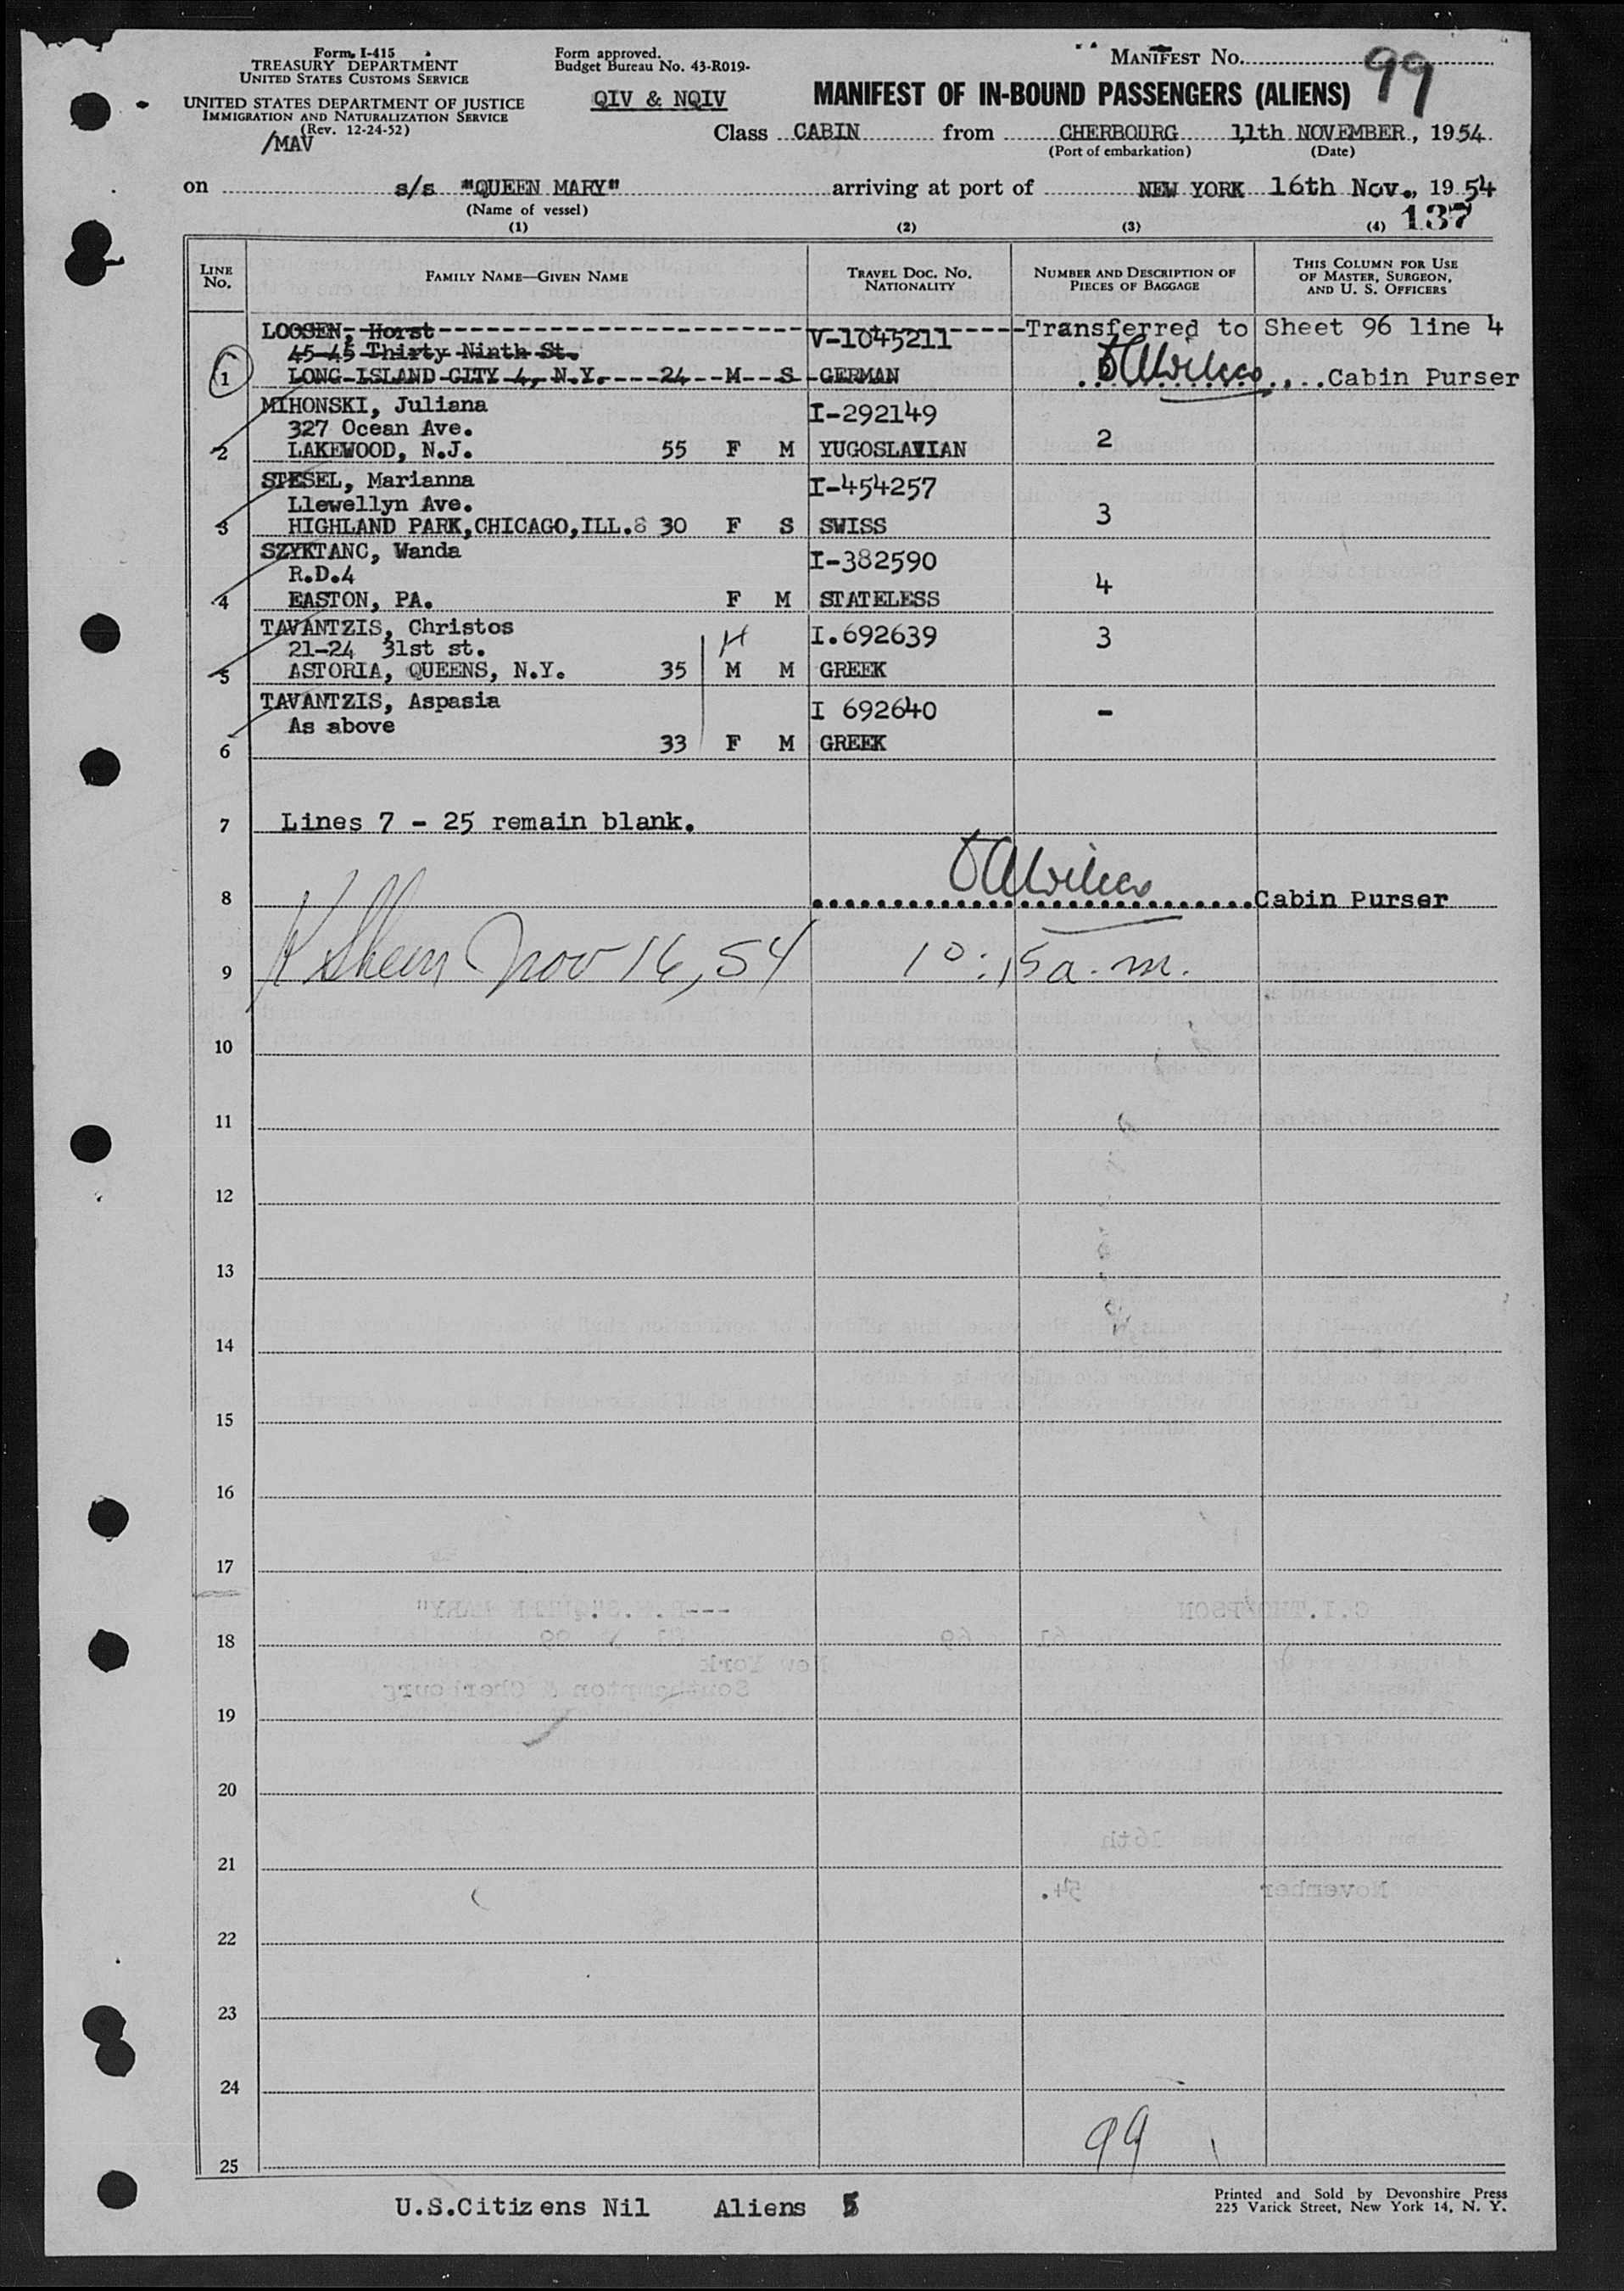 Form I-415
TREASURY DEPARTMENT
UNITED STATES CUSTOMS SERVICE
UNITED STATES DEPARTMENT OF JUSTICE
IMMIGRATION AND NATURALIZATION SERVICE
(Rev. 12-24-52)
/MAV
Form approved.
Budget Bureau No. 43-R019-
QIV & NQIV
MANIFEST NO. 99
MANIFEST OF IN-BOUND PASSENGERS (ALIENS)
Class CABIN from CHERBOURG 11th NOVEMBER, 1954
(Port of embarkation) (Date)
on s/s "QUEEN MARY" arriving at port of NEW YORK 16th Nov., 1954
(Name of vessel)
137
(1) (2) (3) (4)
LINE No. FAMILY NAME—GIVEN NAME TRAVEL DOC. NO. NATIONALITY NUMBER AND DESCRIPTION OF PIECES OF BAGGAGE THIS COLUMN FOR USE OF MASTER, SURGEON, AND U. S. OFFICERS
LOOSEN, Horst V-1045211 Transferred to Sheet 96 line 4
45-45 Thirty Ninth St.
1 LONG ISLAND CITY 4, N.Y. 24 M S GERMAN Cabin Purser
MIHONSKI, Juliana I-292149
327 Ocean Ave. 2
2 LAKEWOOD, N.J. 55 F M YUGOSLAVIAN
STESEL, Marianna I-454257
Llewellyn Ave. 3
3 HIGHLAND PARK, CHICAGO, ILL.8 30 F S SWISS
SZYKTANC, Wanda I-382590
R.D.4 4
4 EASTON, PA. F M STATELESS
TAVANTZIS, Christos H I.692639 3
21-24 31st st.
5 ASTORIA, QUEENS, N.Y. 35 M M GREEK
TAVANTZIS, Aspasia I 692640 -
As above
6 33 F M GREEK
7 Lines 7 - 25 remain blank.
8 Cabin Purser
9 Nov 16, 54 10:15 a.m.
10
11
12
13
14
15
16
17
18
19
20
21
22
23
24
99
25
U.S.Citizens Nil Aliens 5
Printed and Sold by Devonshire Press
225 Varick Street, New York 14, N. Y.